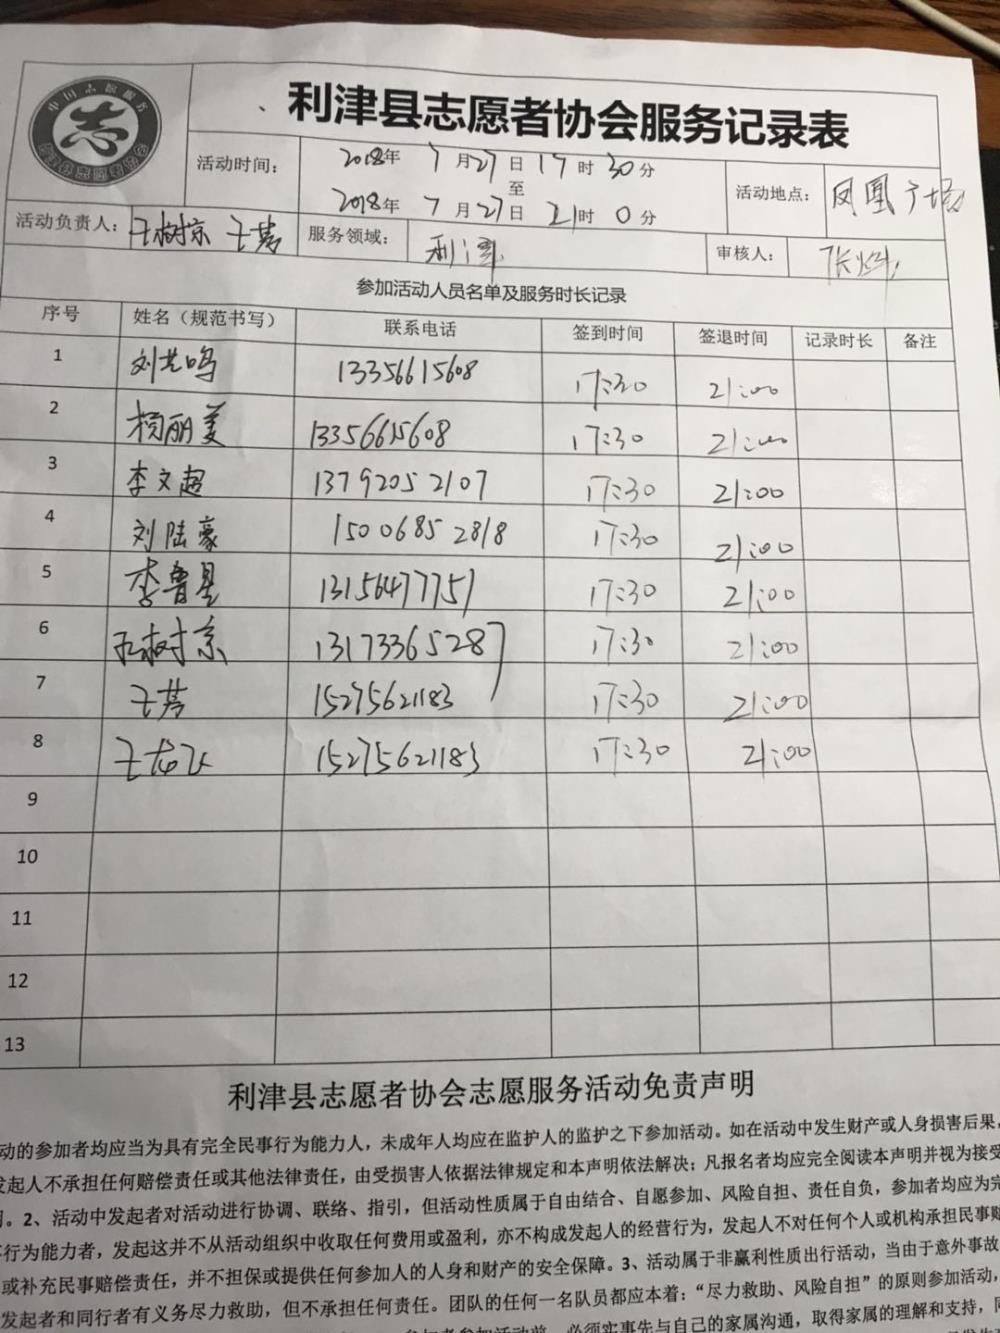 中国志愿服务
志
利津县志愿者协会服务记录表
活动时间： 2018年 7月27日17时30分
至
2018年 7月27日21时0分
活动地点： 凤凰广场
活动负责人： 王树京 王芳 服务领域： 利津 审核人：
参加活动人员名单及服务时长记录
序号 姓名（规范书写） 联系电话 签到时间 签退时间 记录时长 备注
1 刘艺鸣 13356615608 17:30 21:00
2 杨丽美 13356615608 17:30 21:00
3 李文超 13792052107 17:30 21:00
4 刘陆豪 15006852818 17:30 21:00
5 李鲁星 13156477751 17:30 21:00
6 树京 13173365287 17:30 21:00
7 王芳 15275621183 17:30 21:00
8 王龙飞 15275621183 17:30 21:00
9
10
11
12
13
利津县志愿者协会志愿服务活动免责声明
动的参加者均应当为具有完全民事行为能力人，未成年人均应在监护人的监护之下参加活动。如在活动中发生财产或人身损害后果，
发起人不承担任何赔偿责任或其他法律责任，由受损害人依据法律规定和本声明依法解决；凡报名者均应完全阅读本声明并视为接受
。2、活动中发起者对活动进行协调、联络、指引，但活动性质属于自由结合、自愿参加、风险自担、责任自负，参加者均应为完
行为能力者，发起这并不从活动组织中收取任何费用或盈利，亦不构成发起人的经营行为，发起人不对任何个人或机构承担民事赔
或补充民事赔偿责任，并不担保或提供任何参加人的人身和财产的安全保障。3、活动属于非赢利性质出行活动，当由于意外事故
发起者和同行者有义务尽力救助，但不承担任何责任。团队的任何一名队员都应本着：“尽力救助、风险自担”的原则参加活动，
参加者参加活动前，必须实事先与自己的家属沟通，取得家属的理解和支持，同